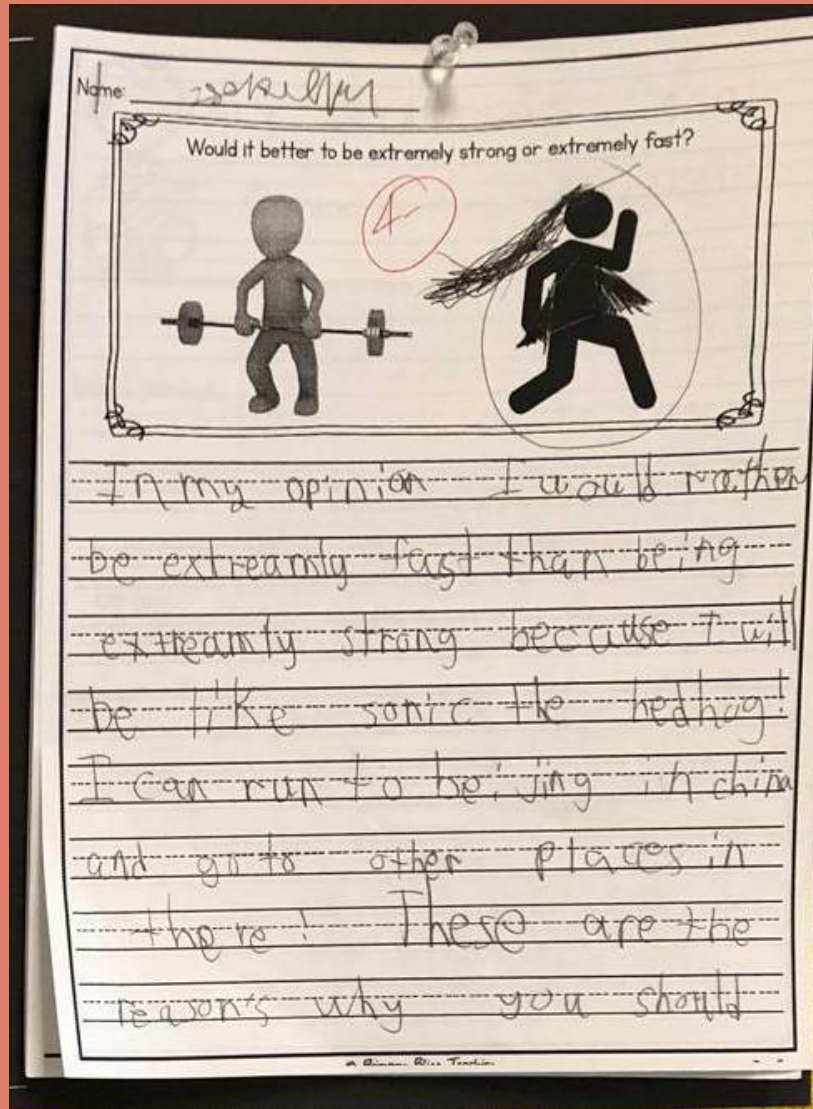 Name:
Would it better to be extremely strong or extremely fast?
4-
In my opinion I would rather
be extreamly fast than being
extreamly strong because I will
be like sonic the hedhog!
I can run to beijing in china
and go to other places in
there! These are the
reason's why you should